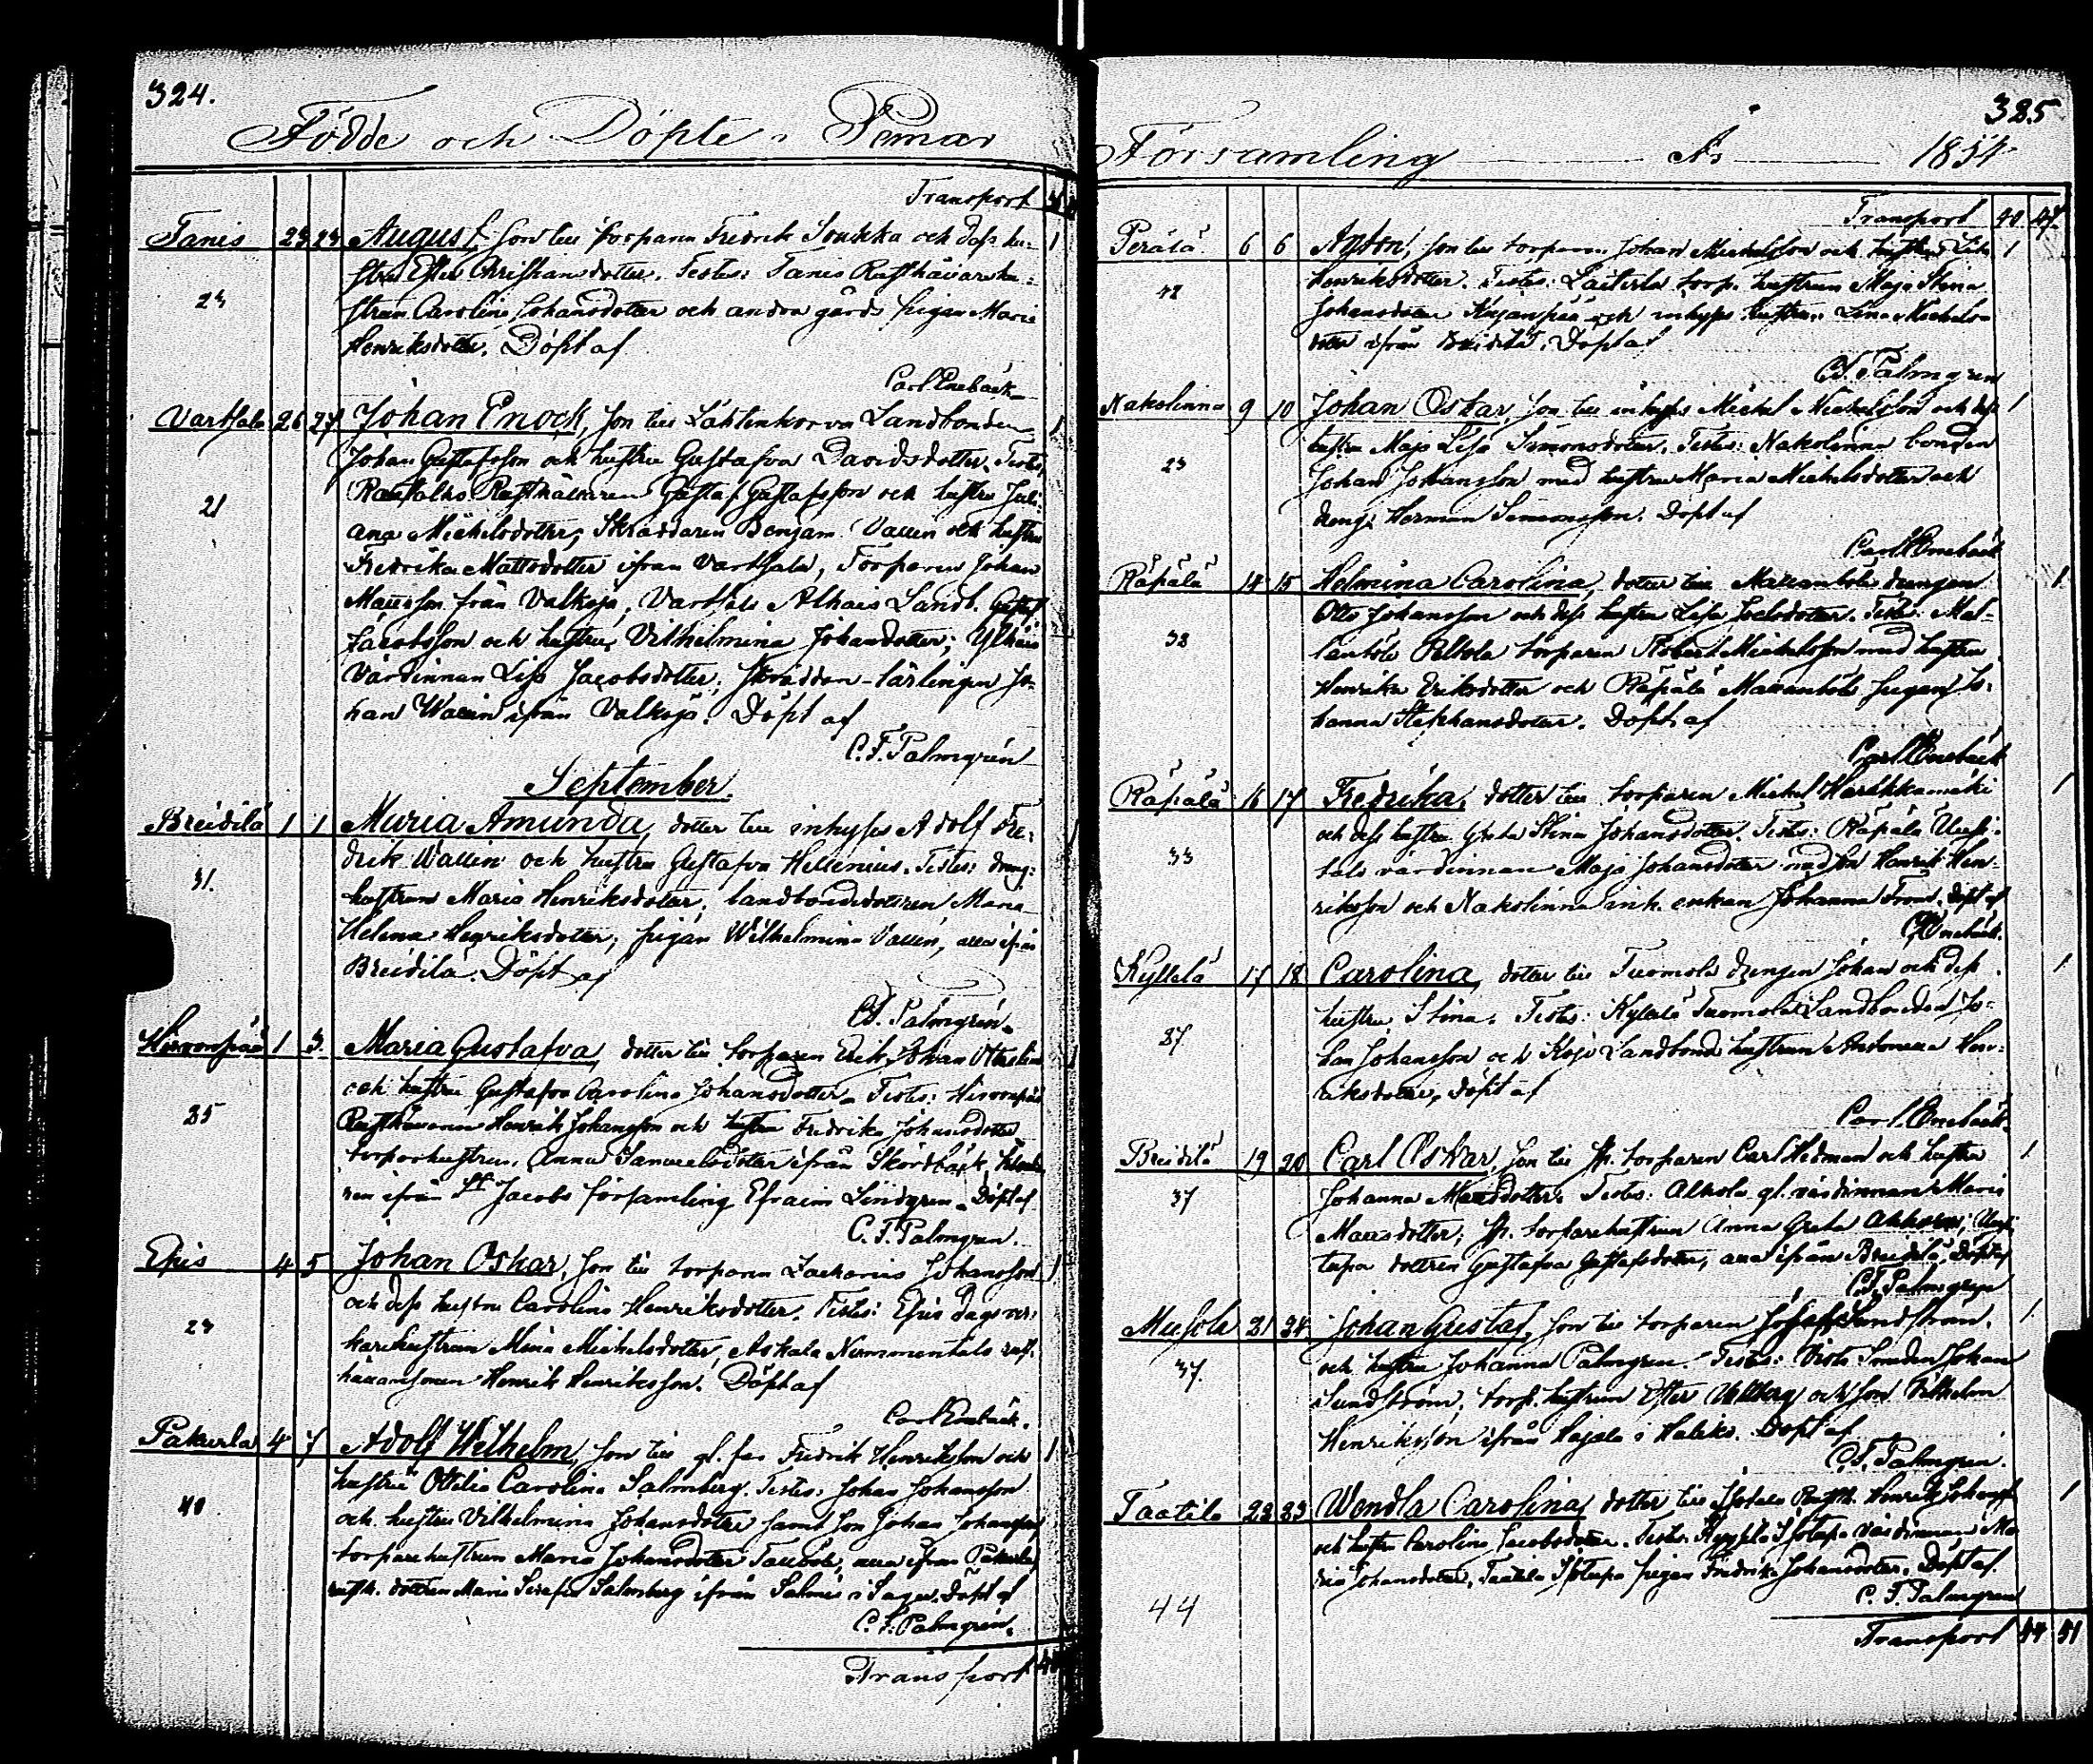 324.
Födde och Döpte i Pemar
Transport
Tanis 23 23 August, son till torparen Fredrik Soukka och dess hu-
stru Ester Christhansdotter. Testes: Tanis Rusthållarehu-
23
strun Carolina Johansdotter och andra gårds pigan Maria
Henriksdotter. Döpt af
Carl Enebäck
Varttala 26 27 Johan Enock, son till Lähtenkorva Landbonden 1
Johan Gustafsson och hustru Gustafva Davidsdotter. Testes:
21
Rusthållaren Gustaf Gustafsson och hustru Juli-
ana Michelsdotter, Skräddaren Benjam. Vallin och hustru
Fredrika Mattsdotter ifrån Varttala, Torparen Johan
Mattsson från Valkoja, Varttala Alhais Landb. Gustaf
Jacobsson och hustru Vilhelmina Johansdotter; Ylhäis
Värdinnan Lisa Jacobsdotter, skräddare-lärlingen Jo-
han Wallin ifrån Valkoja. Döpt af
C. F. Palmgrén
September.
Breidilä 1 1 Maria Amanda, dotter till inhyses Adolf Fre-
drik Wallin och hustru Gustafva Hellenius. Testes: dräng-
31.
hustrun Maria Henriksdotter, landbondedottren Maria
Helena Henriksdotter, pigan Wilhelmina Vallin, alla ifrån
Breidilä. Döpt af
C. F. Palmgrén.
Hirvonpää 1 3 Maria Gustafva, dotter till torparen Erik Johan
och hustru Gustafva Carolina Johansdotter. Testes: Hirvonpää
35
Rusthållaren Henrik Johansson och hustru Fredrika Johansdotter
torparhustrun Anna Samuelsdotter ifrån Skördbäck,
ren ifrån St Jacobs församling Efraim Lindgren. Döpt af
C. F. Palmgren.
Epis 4 5 Johan Oskar, son till torparen Zacharias Johansson 1
och dess hustru Carolina Henriksdotter. Testes: Epis dagsver-
23
karehustrun Mina Michelsdotter, Askala Nummentalo rust-
hållaresonen Henrik Henriksson. Döpt af
Carl Enebäck.
Pakurla 4 7 Adolf Wilhelm, son till gl. Fredrik Henriksson och 1
hustru Ottilia Carolina Salmberg. Testes: Johan Johansson
40
och hustru Vilhelmina Johansdotter samt son Johan Johansson
torparehustrun Maria Johansdotter, alla ifrån Pakurla
rusth. dottren Maria Serafia Salmberg ifrån Salmis i Sagu. Döpt af
C. F. Palmgrén.
Transport
325
Församling År 1854
Transport 40 47.
Perälä 6 6 Anton, son till torparen Johan Michelsson och hustru Lisa 1
Henriksdotter. Testes: Laiterla torp. hustrun Maja Stina
42
Johansdotter och inhyses hustrun Lena Michels-
dotter ifrån Breidilä. Döpt af
C. F. Palmgren
Nakolinna 9 10 Johan Oskar, son till inhyses Michel Michelsson och dess 1
hustru Maja Lisa Simonsdotter. Testes: Nakolinna bonden
23
Johan Johansson med hustru Maria Michelsdotter och
dreng. Herman Simonsson. Döpt af
Carl Enebäck
Räpälä 14 15 Helmina Carolina, dotter till drengen 1
Otto Johansson och dess hustru Lisa Joelsdotter. Testes:
32
Peltola torparen Robert Michelsson med hustru
Henrika Eriksdotter och Räpälä pigan Jo-
hanna Stephansdotter. Döpt af
Carl Enebäck
Räpälä 16 17 Fredrika, dotter till torparen Michel 1
och dess hustru Greta Stina Johansdotter. Testes: Räpälä Uusi-
33
talo värdinnan Maja Johansdotter med son Henrik Hen-
riksson och Nakolinna inh. enkan Johanna. Döpt af
C. Enebäck.
Kyllelä 17 18 Carolina, dotter till Tuomola drengen Johan och dess 1
hustru Stina. Testes: Tuomola Landbonden Jo-
27
han Johansson och Landbonde hustrun Hen-
riksdotter, döpt af
Carl Enebäck.
Breidilä 19 20 Carl Oskar, son till torparen Carl Hedman och hustru 1
Johanna Mattsdotter. Testes: Alhola gl. värdinnan Maria
37
Mattsdotter, torparehustrun Anna Greta
dottren Gustafva Gustafsdotter, alla ifrån Breidilä. Döpt af
C. F. Palmgren
21 24 Johan Gustaf, son till torparen Sundström. 1
och hustru Johanna Palmgren. Testes: Smeden Johan
37.
Sundström, torp. hustrun Ester och son Vilhelm
Henriksson ifrån i Haliko. Döpt af
C. F. Palmgren.
Taatila 23 23 Wendla Carolina, dotter till Rusth. Henrik Johansson 1
och hustru Carolina Jacobsdotter. Testes: värdinnan Ma-
ria Johansdotter, Taatila pigan Fredrika Johansdotter. Döpt af.
44
C. F. Palmgren
Transport 44 51